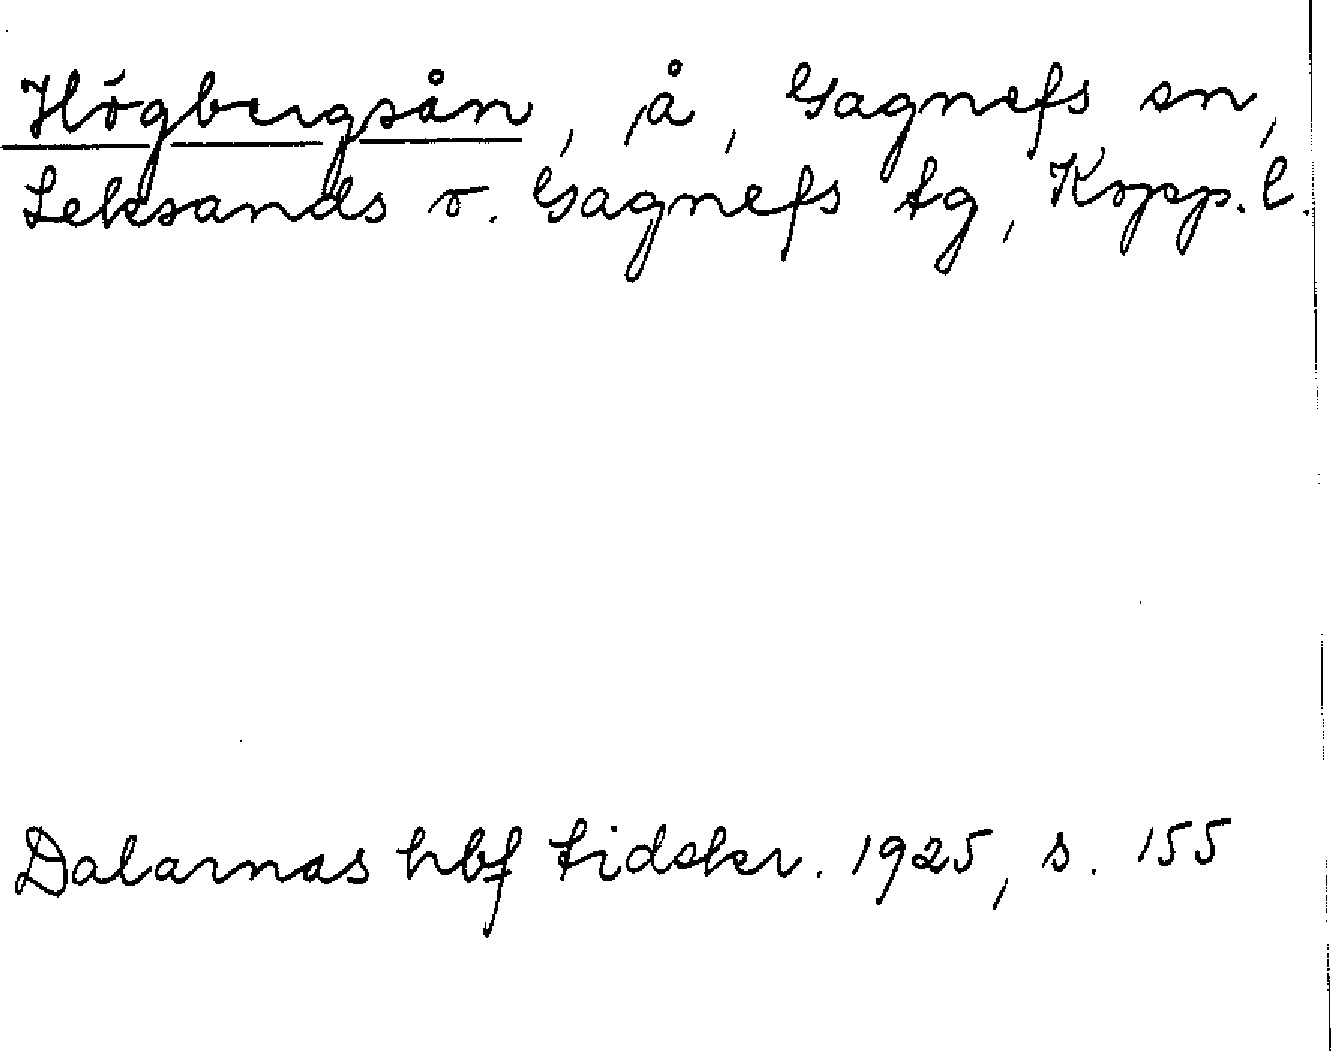 Högbergsån, å, Gagnefs sn,
Leksands o. Gagnefs tg, Kopp. l.
Dalarnas hbf tidskr. 1925, s. 155